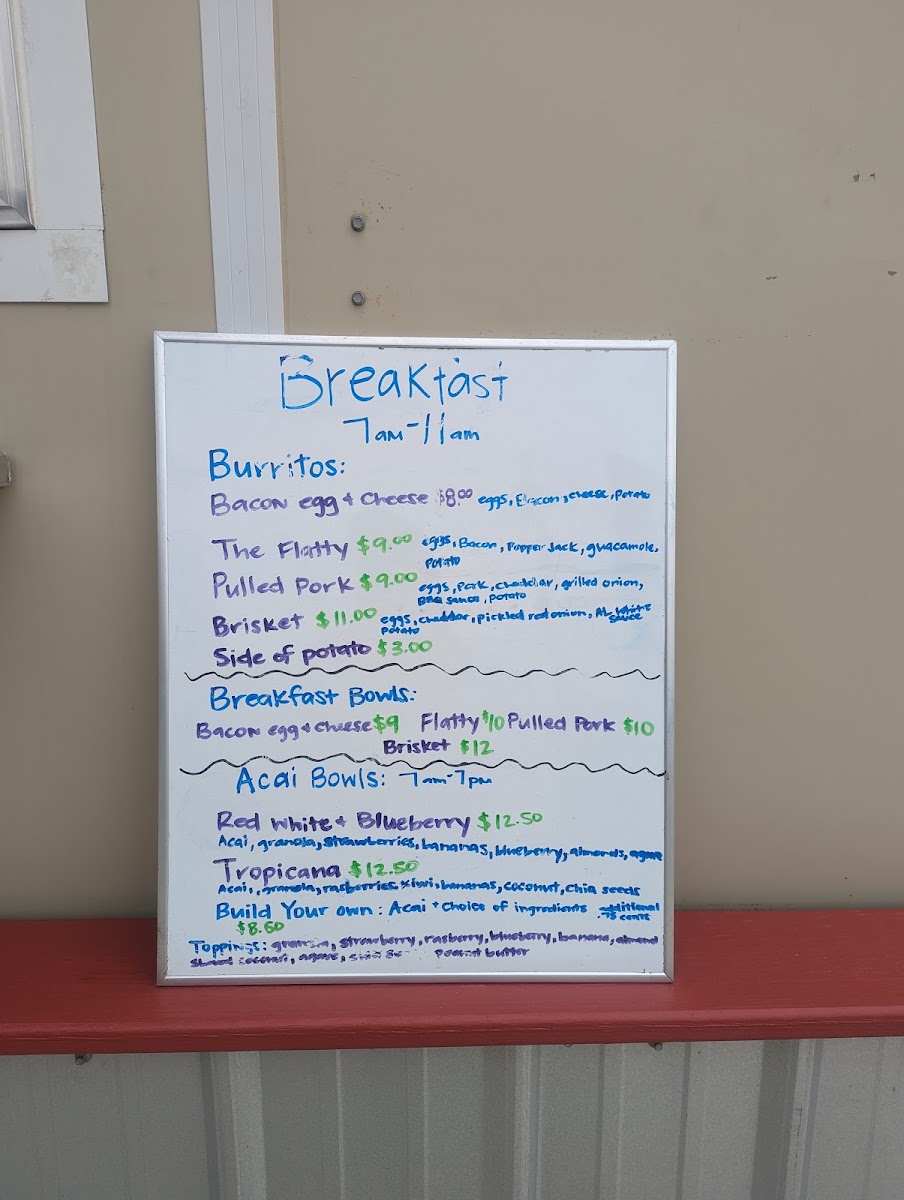 Breakfast
7am-11am
Burritos:
Bacon egg + Cheese $8.00 eggs, Bacon, cheese, Potato
The Flatty $9.00 eggs, Bacon, Pepper Jack, guacamole,
Potato
Pulled Pork $9.00 eggs, Pork, cheddar, grilled onion,
BBQ sauce, potato
Brisket $11.00 eggs, cheddar, pickled red onion, AL white sauce
Potato
Side of potato $3.00
Breakfast Bowls:
Bacon egg + cheese $9 Flatty $10 Pulled Pork $10
Brisket $12
Acai Bowls: 7am-7pm
Red White + Blueberry $12.50
Acai, granola, strawberries, bananas, blueberry, almonds, agave
Tropicana $12.50
Acai, granola, rasberries, kiwi, bananas, coconut, chia seeds
Build Your own: Acai + Choice of ingredients additional .75 cents
$8.50
Toppings: granola, strawberry, rasberry, blueberry, banana, almond
coconut, agave, Peanut butter